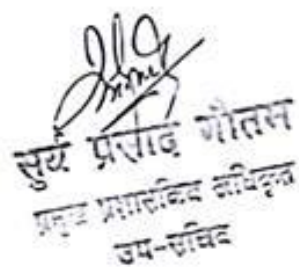 सुर्य प्रसाद गौतम
प्रमुख प्रशासकिय अधिकृत
उप-सचिव